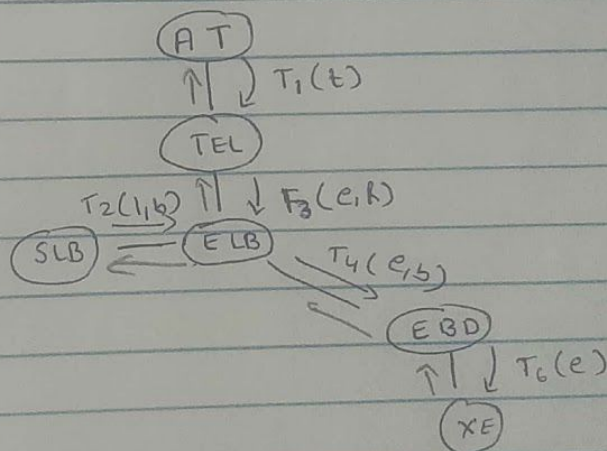 A T
T₁(t)
TEL
T₂(l,b)
F₃(e,l)
SLB
ELB
T₄(e,b)
EBD
T₆(e)
XE